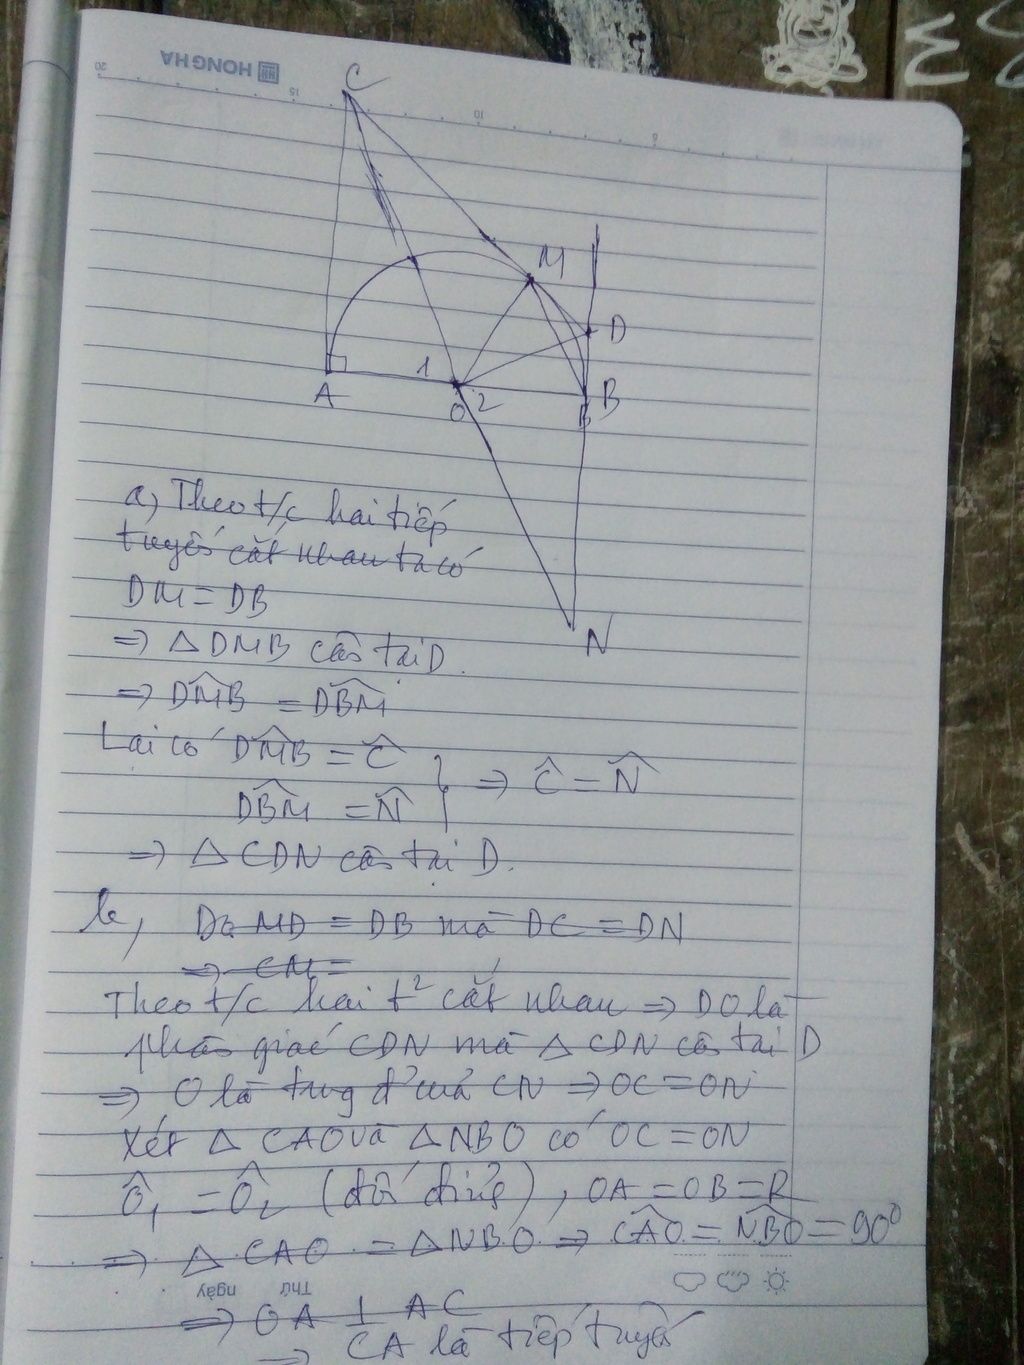 HONG HA
20
15
10
5
C
M
D
A
1
O
2
B
B
N
a, Theo t/c hai tiếp
tuyến cắt nhau ta có
DM = DB
=> △ DMB cân tại D.
=> DM̂B = DB̂M
Lại có DM̂B = Ĉ
DB̂M = N̂ } => Ĉ = N̂
=> △ CDN cân tại D.
b, Do MD = DB mà DC = DN
=> CM =
Theo t/c hai t² cắt nhau => DO là
phân giác CDN mà △ CDN cân tại D
=> O là trung đ' của CN => OC = ON
Xét △ CAO và △ NBO có OC = ON
Ô₁ = Ô₂ (đối đỉnh), OA = OB = R
=> △ CAO = △ NBO => CÂO = NB̂O = 90⁰
Thứ
ngày
=> OA ⊥ AC
=> CA là tiếp tuyến